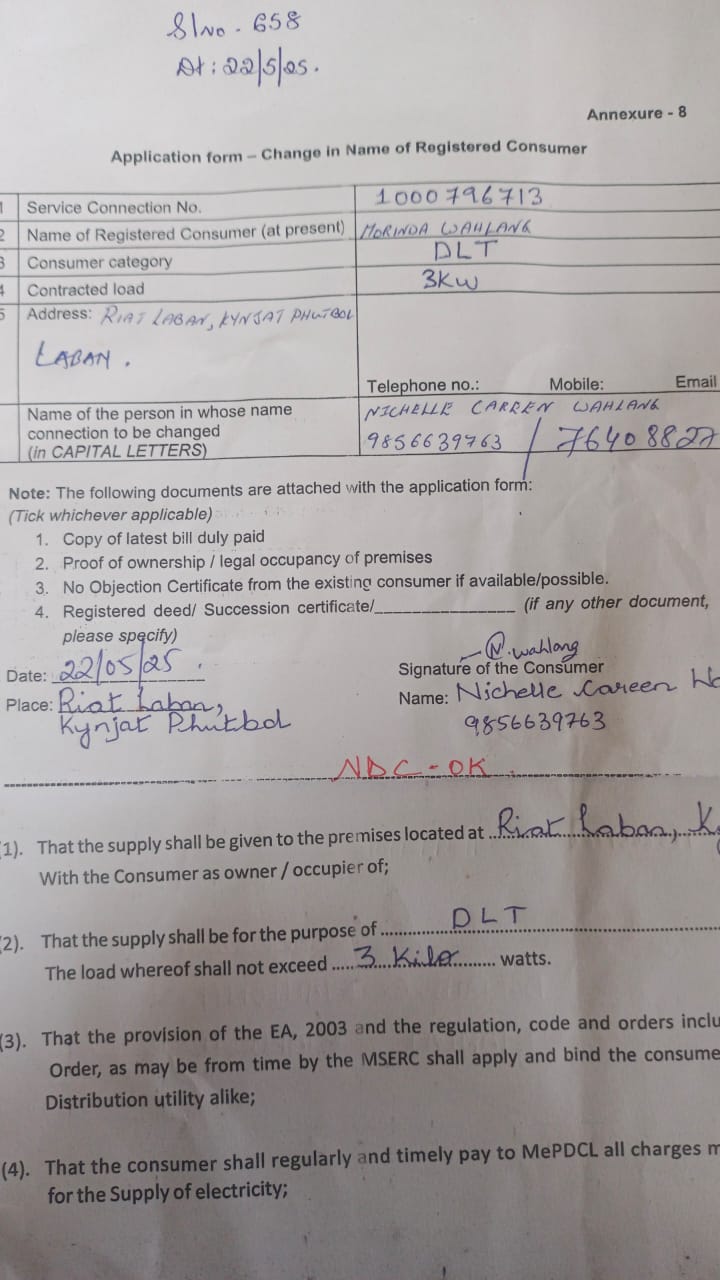 Sl No. 658
Dt: 22/5/25.
Annexure - 8
Application form – Change in Name of Registered Consumer
1 Service Connection No. 1000796713
2 Name of Registered Consumer (at present) MORINDA WAHLANG
3 Consumer category DLT
4 Contracted load 3KW
5 Address: RIAT LABAN, KYNJAT PHUTBOL
LABAN.
Telephone no.: Mobile: Email
Name of the person in whose name NICHELLE CARREN WAHLANG
connection to be changed 9856639763 / 76408827
(in CAPITAL LETTERS)
Note: The following documents are attached with the application form:
(Tick whichever applicable)
1. Copy of latest bill duly paid
2. Proof of ownership / legal occupancy of premises
3. No Objection Certificate from the existing consumer if available/possible.
4. Registered deed/ Succession certificate/_______________ (if any other document,
please specify)
N. wahlang
Date: 22/05/25. Signature of the Consumer
Place: Riat Laban, Name: Nichelle Careen Wa
Kynjat Phutbol 9856639763
NDC - OK
(1). That the supply shall be given to the premises located at Riat Laban, K
With the Consumer as owner / occupier of;
(2). That the supply shall be for the purpose of DLT
The load whereof shall not exceed ..... 3 Kilo ........ watts.
(3). That the provision of the EA, 2003 and the regulation, code and orders inclu
Order, as may be from time by the MSERC shall apply and bind the consume
Distribution utility alike;
(4). That the consumer shall regularly and timely pay to MePDCL all charges m
for the Supply of electricity;